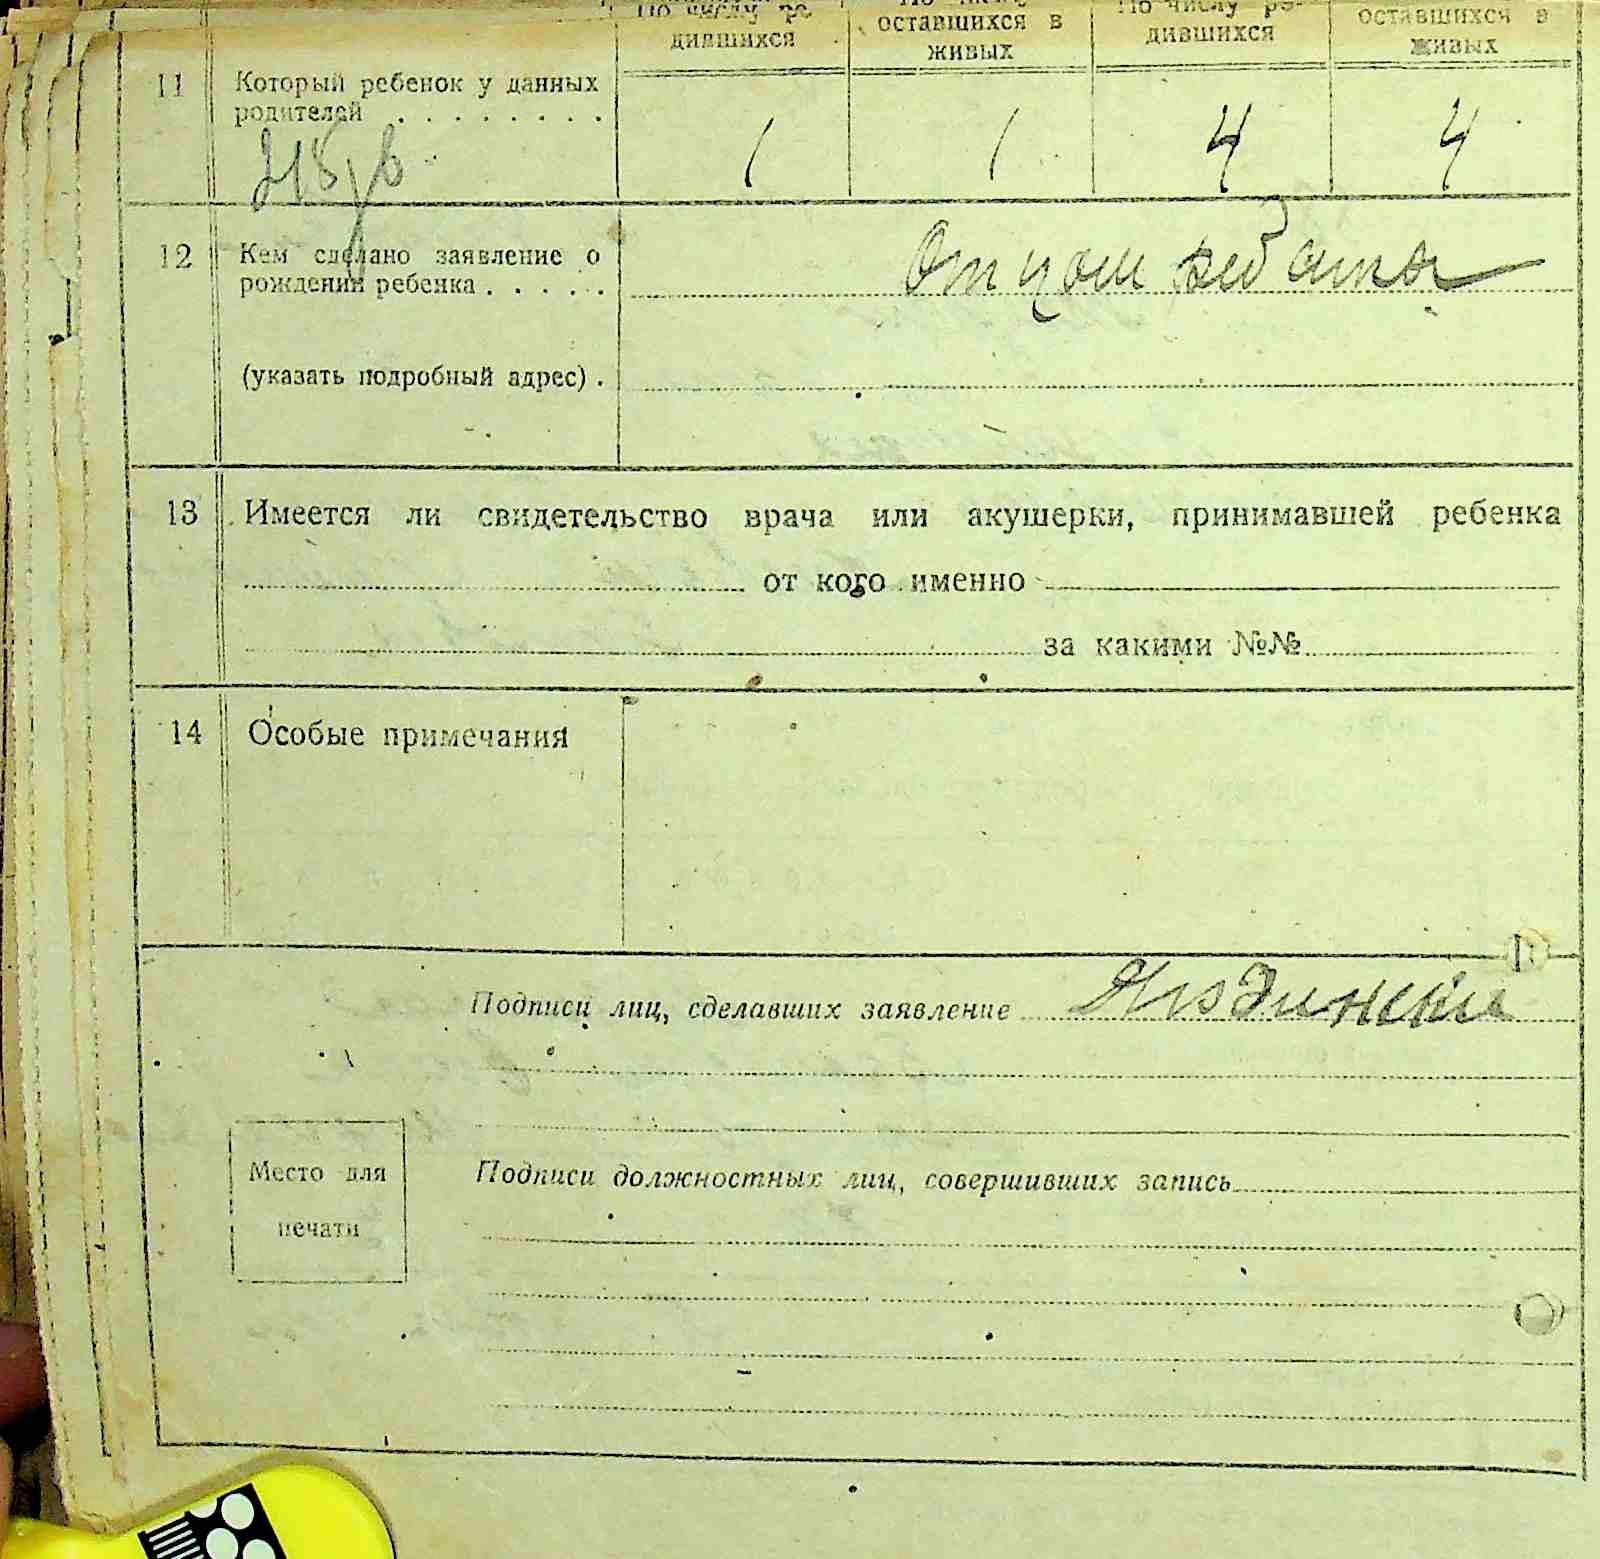 По числу ро-
дившихся
оставшихся в
живых
По числу ро-
дившихся
оставшихся в
живых
11
Который ребенок у данных
родителей . . . . . . . .
1
1
4
4
12
Кем сделано заявление о
рождении ребенка . . . . .
Отцом
(указать подробный адрес) .
13
Имеется ли свидетельство врача или акушерки, принимавшей ребенка
от кого именно
за какими №№
14
Особые примечания
Подписи лиц, сделавших заявление
Место для
печати
Подписи должностных лиц, совершивших запись